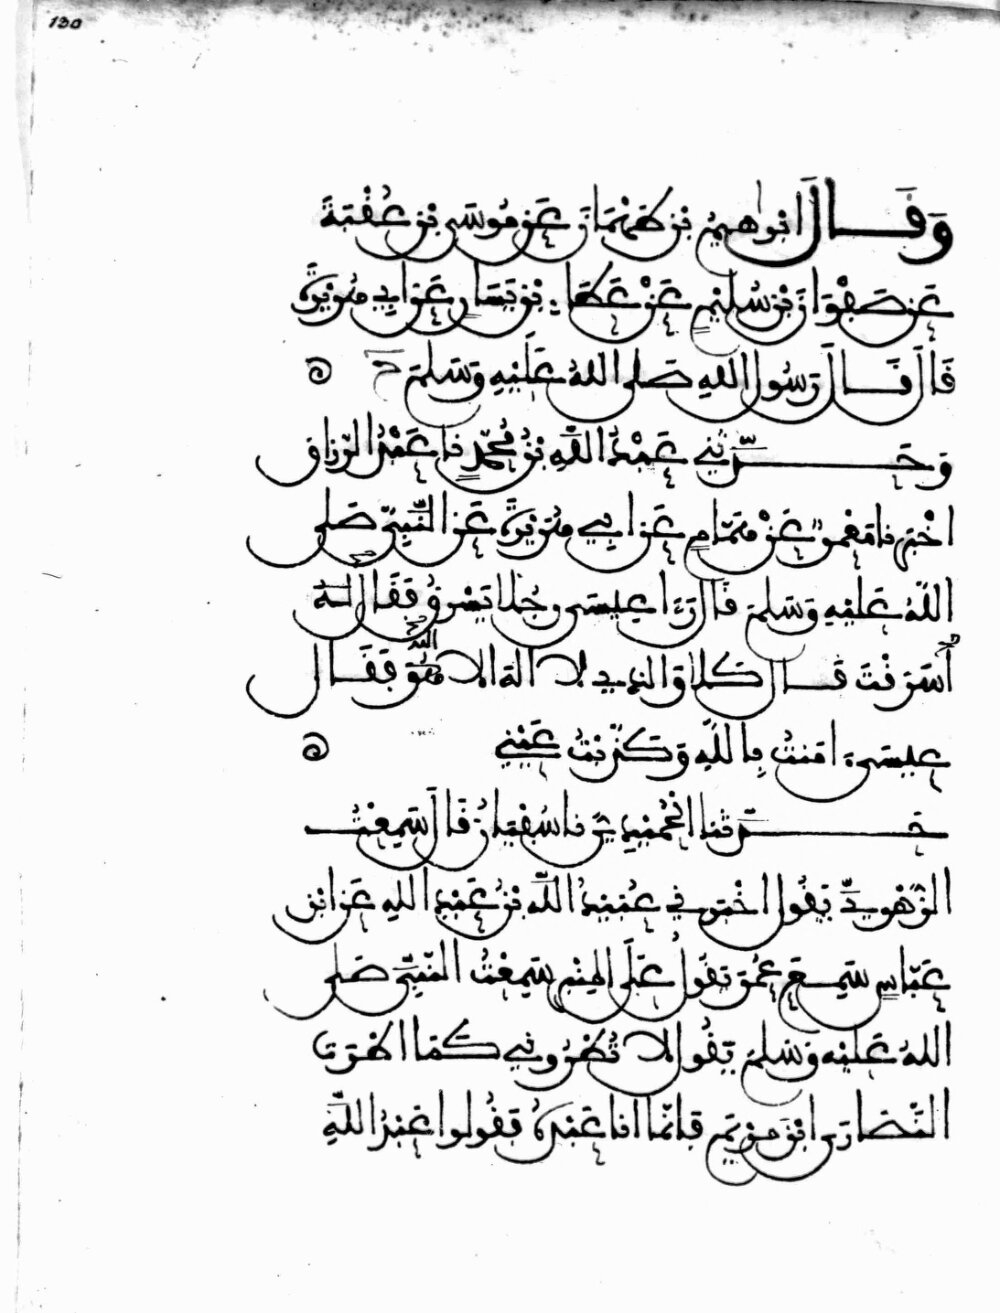 130
وَقَالَ ابْرٰهِيمُ بْنُ طَهْمَانَ عَنْ مُوسَى بْنِ عُقْبَةَ
عَنْ صَفْوَانَ بْنِ سُلَيْمٍ عَنْ عَطَاءِ بْنِ يَسَارٍ عَنْ ابِي هُرَيْرَةَ
قَالَ قَالَ رَسُولُ اللهِ صَلى اللهُ عَلَيْهِ وَسَلمَ ح
وَحَدَّثَنِي عَبْدُ اللَّهِ بْنُ مُحَمَّدٍ نا عَبْدُ الرَّزاق
اخْبَرَنا مَعْمَرٌ عَنْ هَمَّامٍ عَنْ ابِي هُرَيْرَةَ عَنِ النَّبِيّ صَلى
اللهُ عَلَيْهِ وَسَلمَ قَالَ رَءَا عِيسَى رَجُلا يَسْرِقُ فَقَالَ لَهُ
أَسَرَقْتَ قَالَ كَلا وَالذِي لا الَهَ الا هُوَ فَقَال
عِيسَى ءامَنتُ بِاللَّهِ وَكَذَّبْتُ عَيْنِي
حَدَّثَنا الحُمَيْدِيُّ نا سُفْيَانُ قَالَ سَمِعْتُ
الزُّهْرِيَّ يَقُولُ اخْبَرَنِي عُبَيْدُ اللهِ بْنُ عَبْدِ اللهِ عَنِ ابْنِ
عَبَّاسٍ سَمِعَ عُمَرَ يَقُولُ عَلَى المِنْبَرِ سَمِعْتُ النَّبِيَّ صَلى
اللهُ عَلَيْهِ وَسَلمَ يَقُولُ لا تُطْرُونِي كَمَا اطْرَتِ
النَّصَارَى ابْنَ مَرْيَمَ فَانَّمَا انا عَبْدُهُ فَقُولُوا عَبْدُ اللَّهِ